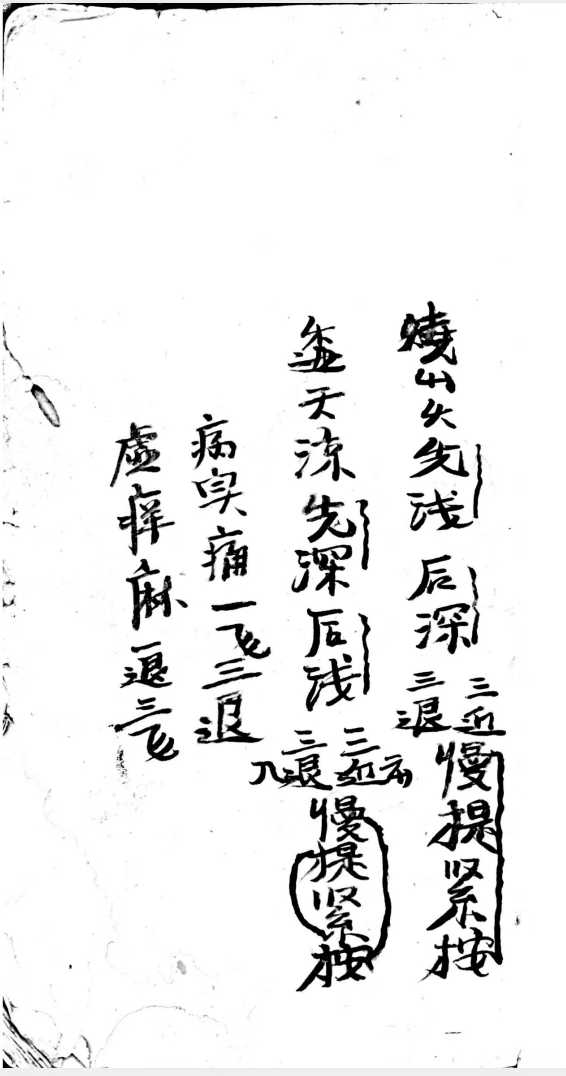 燒山火先浅后深三近三退慢提紧按
透天涼先深后浅三近三退慢提紧按
病実痛一飞三退
虚痒麻一退三飞